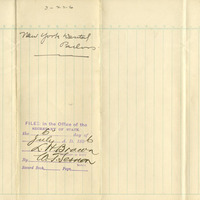 New York Dental
Parlors
FILED in the Office of the
SECRETARY OF STATE
the 6 day of
July A. D. 1906
D. H. Brown
By
Record Book, Page